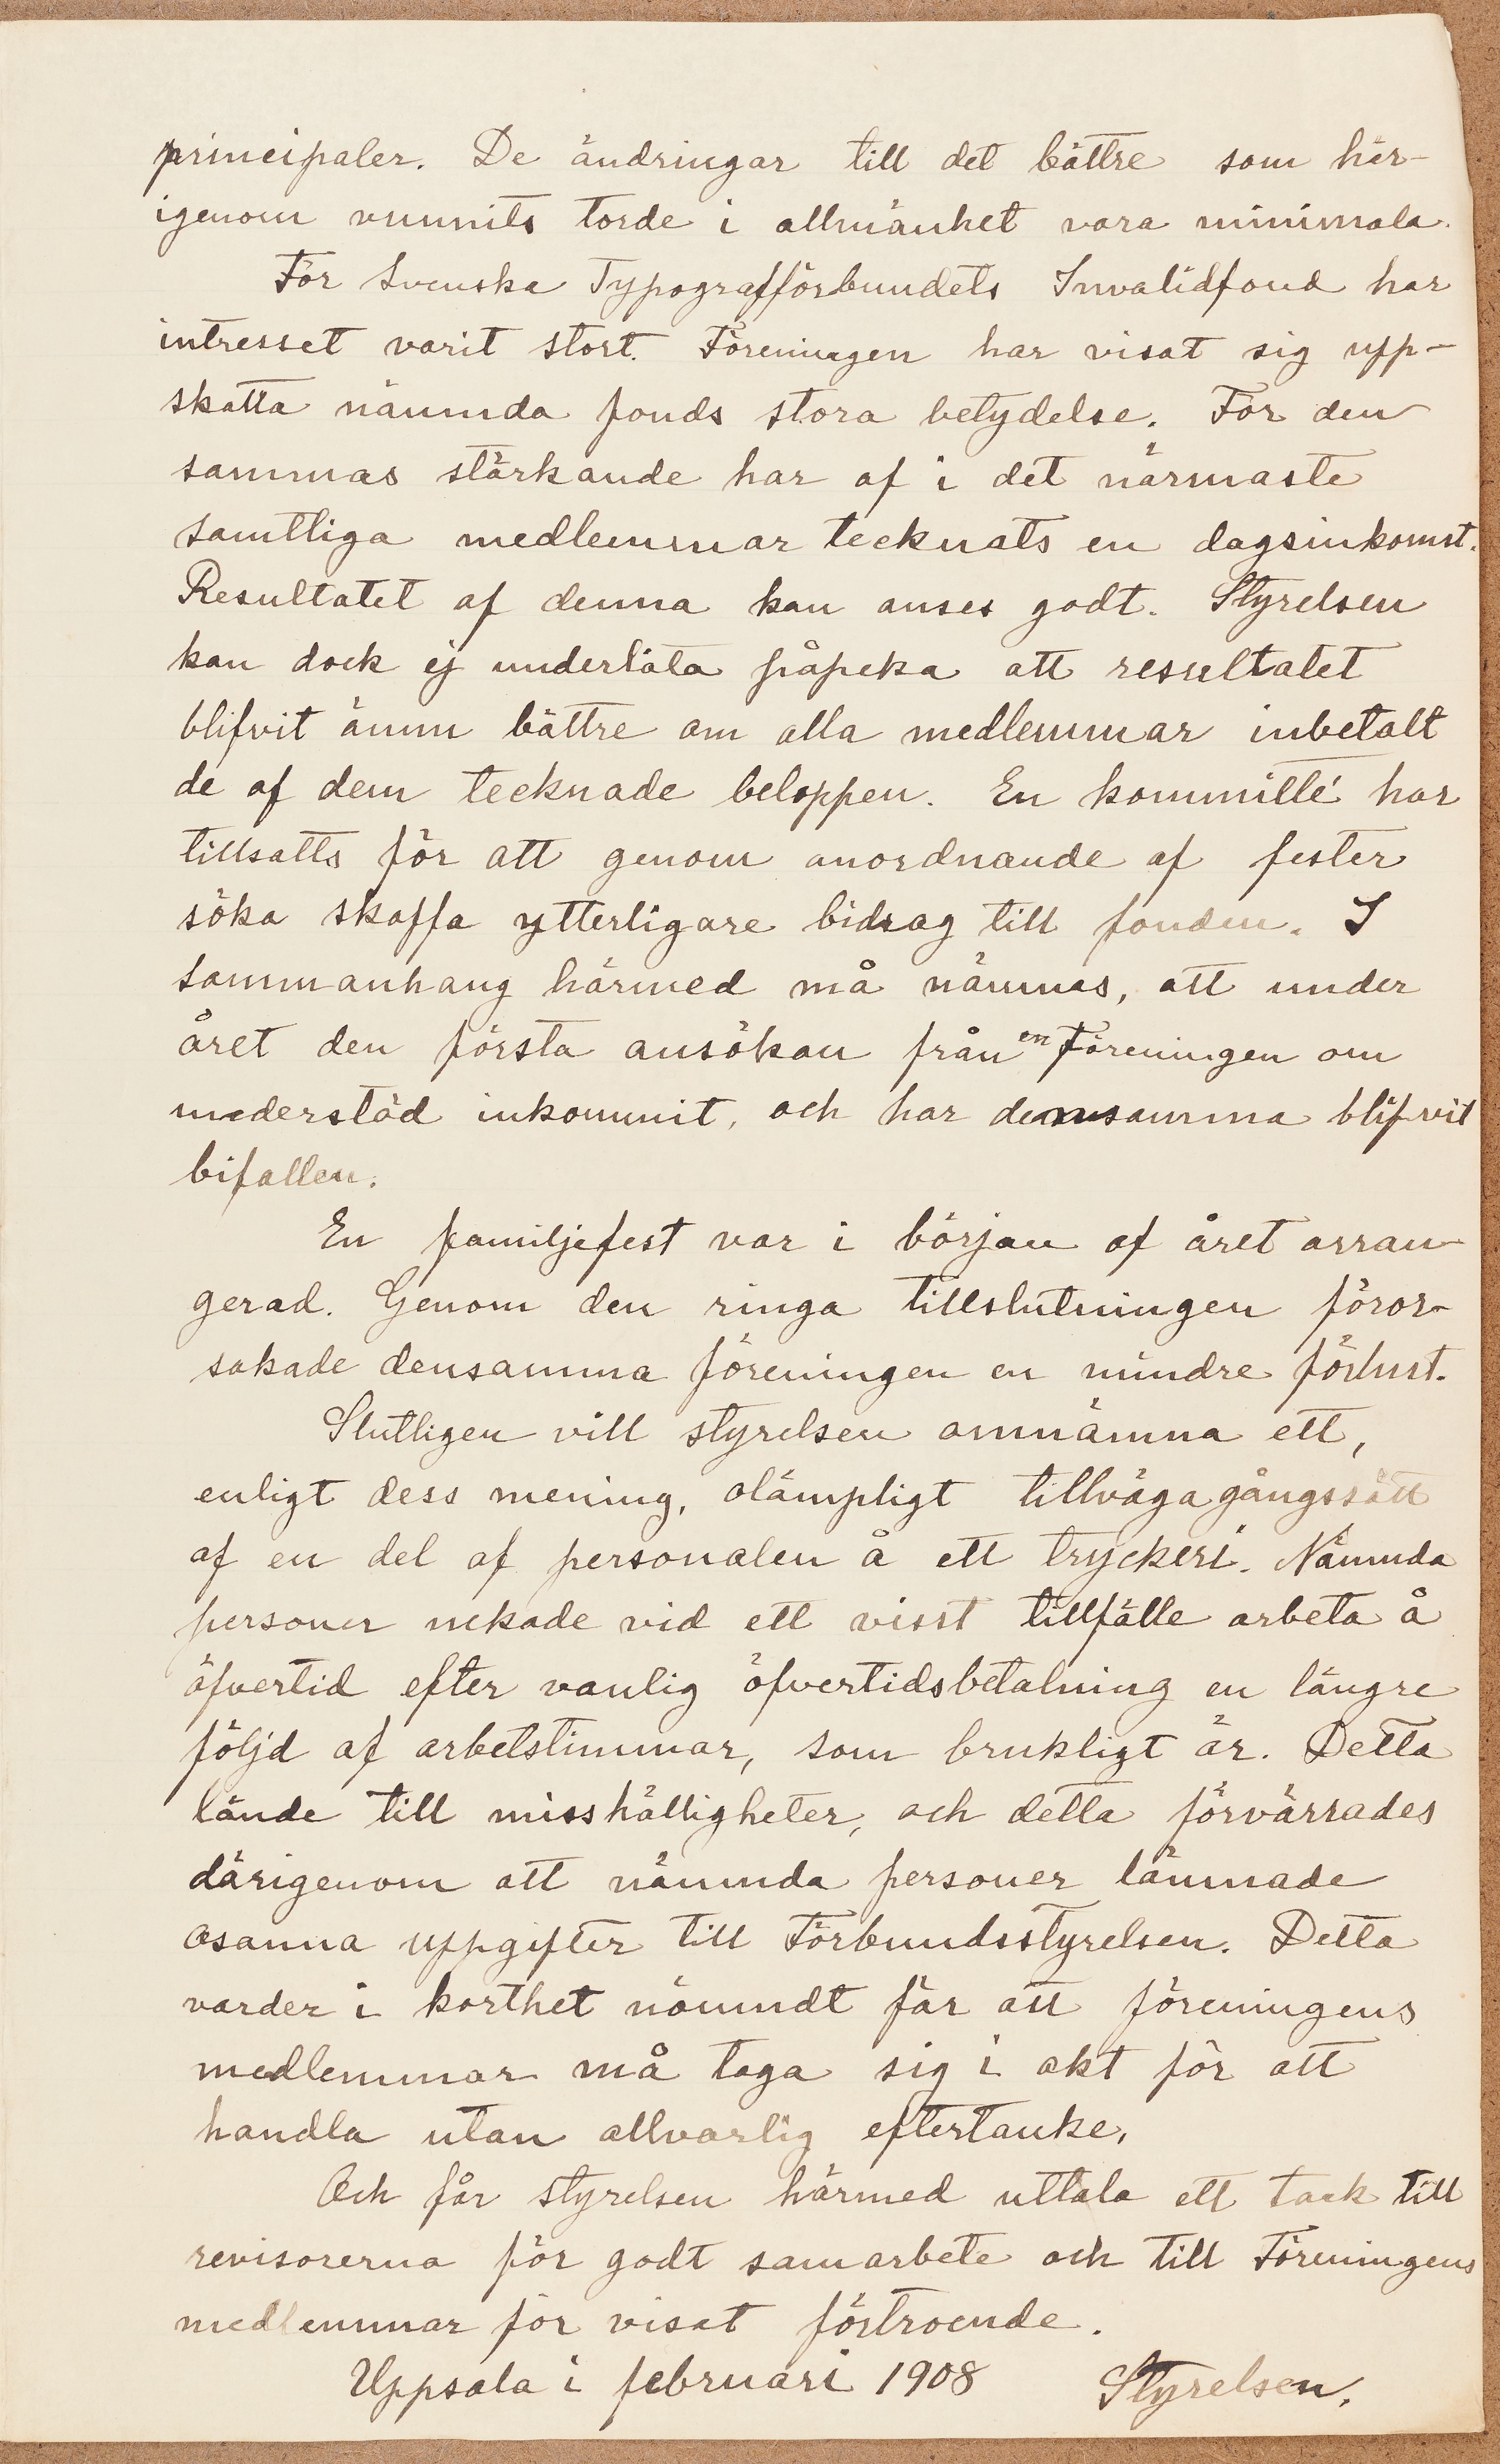 principaler. De ändringar till det bättre som här-
igenom vunnits torde i allmänhet vara minimala.
För Svenska Typografförbundets Invalidfond har
intresset varit stort. Föreningen har visat sig upp-
skatta nämnda fonds stora betydelse. För den
sammas stärkande har af i det närmaste
samtliga medlemmar tecknats en dagsinkomst.
Resultatet af denna kan anses godt. Styrelsen
kan dock ej underlåta påpeka att resultatet
blifvit ännu bättre om alla medlemmar inbetalt
de af dem tecknade beloppen. En kommitté har
tillsatts för att genom anordnande af fester
söka skaffa ytterligare bidrag till fonden. I
sammanhang härmed må nämnas, att under
året den första ansökan från en Föreningen om
understöd inkommit, och har densamma blifvit
bifallen.
En familjefest var i början af året arran-
gerad. Genom den ringa tillslutningen föror-
sakade densamma föreningen en mindre förlust.
Slutligen vill styrelsen omnämna ett,
enligt dess mening, olämpligt tillvägagångssätt
af en del af personalen å ett tryckeri. Nämnda
personer nekade vid ett visst tillfälle arbeta å
öfvertid efter vanlig öfvertidsbetalning en längre
följd af arbetstimmar, som brukligt är. Detta
lände till misshälligheter, och detta förvärrades
därigenom att nämnda personer lämnade
osanna uppgifter till Förbundsstyrelsen. Detta
varder i korthet nämndt för att föreningens
medlemmar må taga sig i akt för att
handla utan allvarlig eftertanke.
Och får styrelsen härmed uttala ett tack till
revisorerna för godt samarbete och till Föreningens
medlemmar för visat förtroende.
Uppsala i februari 1908 Styrelsen.